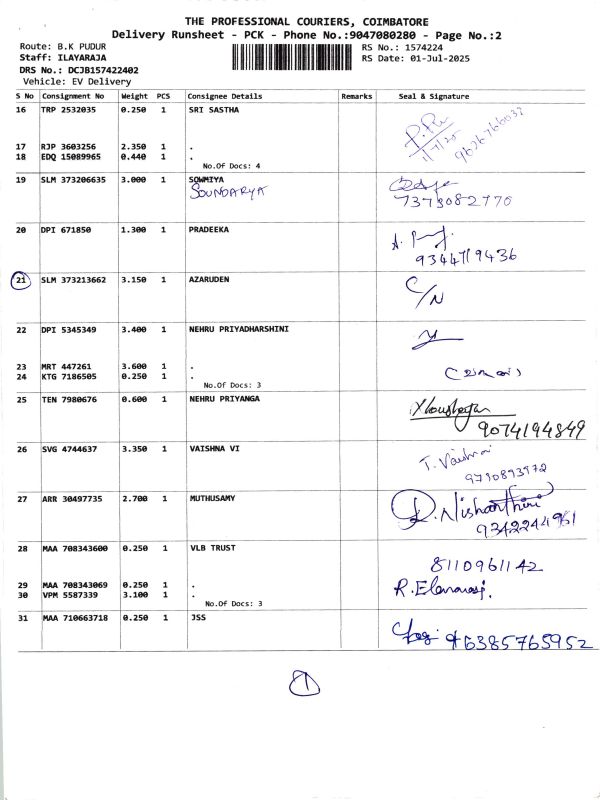 THE PROFESSIONAL COURIERS, COIMBATORE
Delivery Runsheet - PCK - Phone No.:9047080280 - Page No.:2
Route: B.K PUDUR
RS No.: 1574224
Staff: ILAYARAJA
RS Date: 01-Jul-2025
DRS No.: DCJB157422402
Vehicle: EV Delivery
S No Consignment No Weight PCS Consignee Details Remarks Seal & Signature
16 TRP 2532035 0.250 1 SRI SASTHA
1/7/25 9626766032
17 RJP 3603256 2.350 1 .
18 EDQ 15089965 0.440 1 .
No.Of Docs: 4
19 SLM 373206635 3.000 1 SOWMIYA
SOUNDARYA 7373082770
20 DPI 671850 1.300 1 PRADEEKA
9344719436
21 SLM 373213662 3.150 1 AZARUDEN C/N
22 DPI 5345349 3.400 1 NEHRU PRIYADHARSHINI
23 MRT 447261 3.600 1 .
24 KTG 7186505 0.250 1 .
No.Of Docs: 3
25 TEN 7980676 0.600 1 NEHRU PRIYANGA
9074194849
26 SVG 4744637 3.350 1 VAISHNA VI T. Vaishnavi
9790893972
27 ARR 30497735 2.700 1 MUTHUSAMY D. Nishanthini
9342244961
28 MAA 708343600 0.250 1 VLB TRUST
8110961142
29 MAA 708343069 0.250 1 .
30 VPM 5587339 3.100 1 .
No.Of Docs: 3
31 MAA 710663718 0.250 1 JSS
6385765952
1